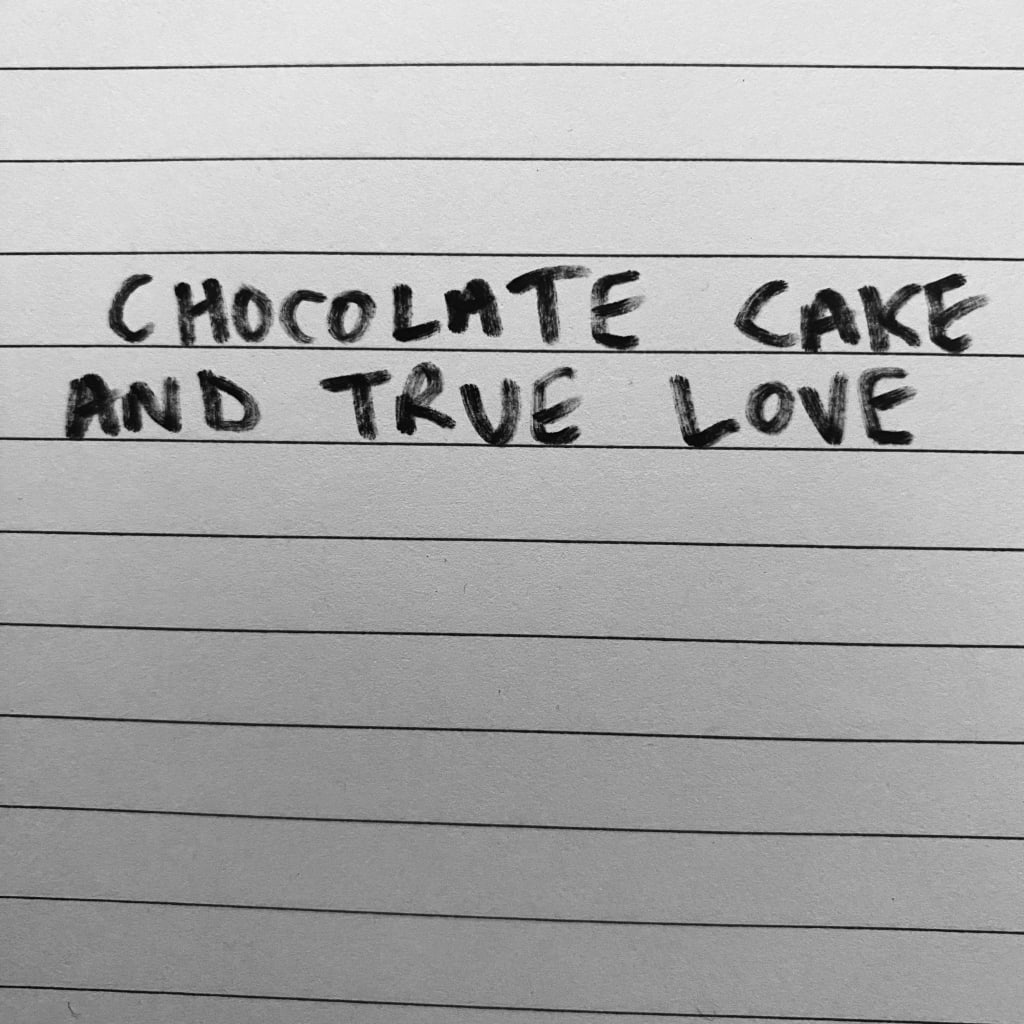 CHOCOLATE CAKE
AND TRUE LOVE